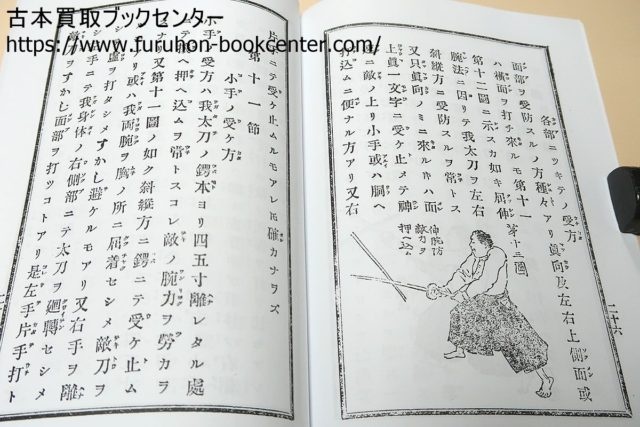 古本買取ブックセンター
https://www.furuhon-bookcenter.com/
各部ニツキテノ受方
面部ヲ受防スルノ方種々アリ眞向及左右上側面或
ハ橫面ヲ打チ來ルモ第十一
第十二圖ニ示スカ如キ屈伸
腕法ニ因リテ我太刀ヲ左右
斜縱方ニ受防スルヲ常トス
又只眞向ノミニ來ルハ面
上眞一文字ニ受ケ止メテ神
ニ敵ノ上リ小手或ハ胴ヘ
打込ムニ便ナル方アリ又右
第十三圖
伸腕防
敵刀ヲ
押込ム
二十六
片ニテ受ケ止ムルモアレ𪜈確カナラズ
第十一節
小手ノ受ケ方
小手ノ受方ハ我太刀ノ鍔本ヨリ四五寸離レタル處
ニテ押ヘ込ムヲ常トスコレ敵ノ腕力ヲ勞カラ
ナリ又第十一圖ノ如ク斜縱方ニ鍔ニテ受ケ止ム
アリ或ハ我兩腕ヲ胸ノ所ニ屈着セシメ敵刀ヲ
シ虛ヲ打タシメすかし避ケルモアリ又右手ヲ離
シ手ニテ我身体ノ右側部ニテ太刀ヲ廻轉セシメ
敵刀ヲすかし面部ヲ打ツコトアリ是左手片手打ト